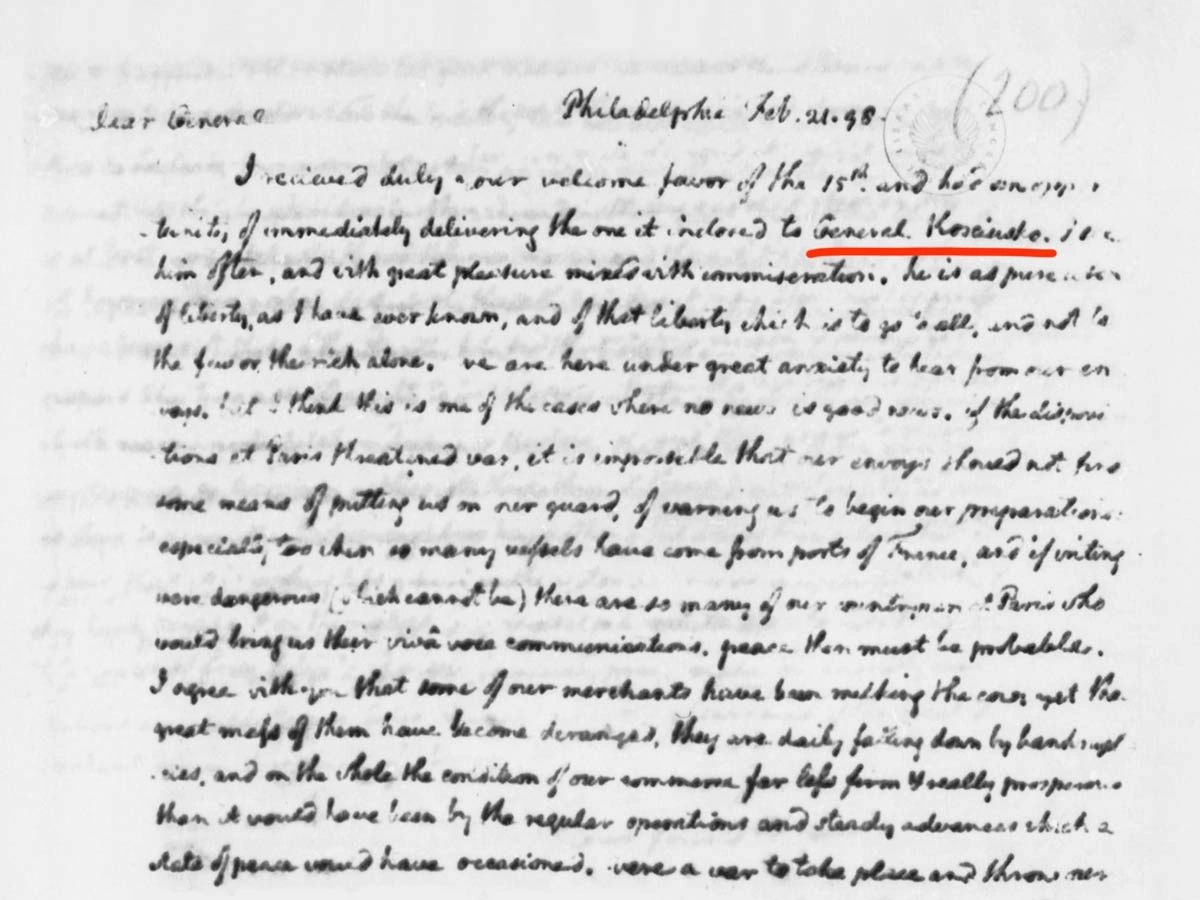 (200)
Dear General Philadelphia Feb. 21. 98.
I recieved duly your welcome favor of the 15th. and had an oppor
tunity of immediately delivering the one it inclosed to General Kosciusko. I see
him often, and with great pleasure mixed with commiseration. he is as pure a son
of liberty, as I have ever known, and of that liberty which is to go to all, and not to
the few or the rich alone. we are here under great anxiety to hear from our en
voys. I think this is one of the cases where no news is good news. if the disposi
tions at Paris threatened war, it is impossible that our envoys should not find
some means of putting us on our guard, of warning us to begin our preparations:
especially too when so many vessels have come from ports of France. and if writing
were dangerous (which cannot be) there are so many of our countrymen at Paris who
would bring us their vivâ voce communications. peace then must be probable.
I agree with you that some of our merchants have been milking the cow: yet the
great mass of them have become deranged. they are daily falling down by bankrupt
cies, and on the whole the condition of our commerce far less firm & really prosperous
than it would have been by the regular operations and steady advances which a
state of peace would have occasioned. were a war to take place and throw our